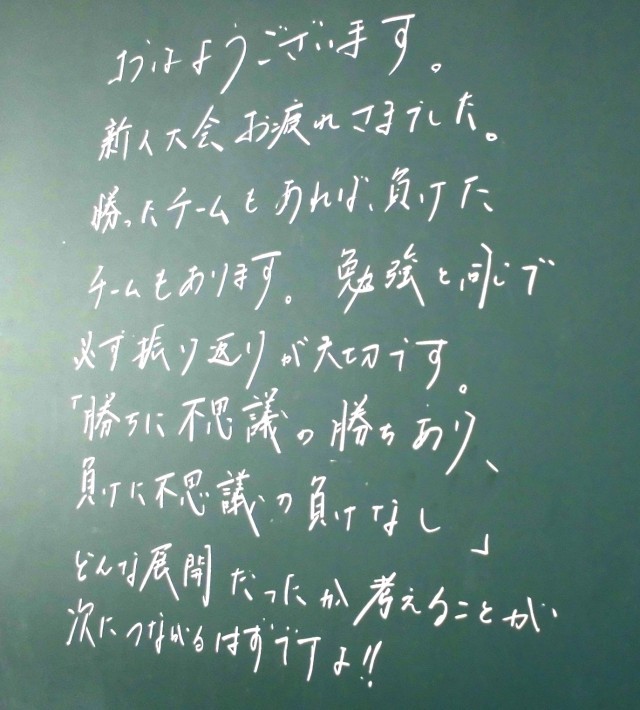 おはようございます。
新人大会お疲れさまでした。
勝ったチームもあれば、負けた
チームもあります。勉強と同じで
必ず振り返りが大切です。
「勝ちに不思議の勝ちあり、
負けに不思議の負けなし」
どんな展開だったか考えることが
次につながるはずですよ!!